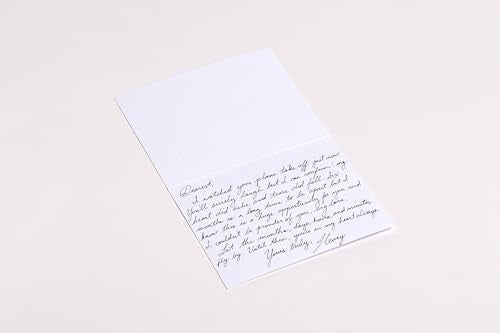 Dearest,
I watched your plane take off just now.
You'll surely laugh but I can confirm: my
heart did ache and tears did fall. Six
months is a long time to be apart but I
know this is a huge opportunity for you and
I couldn't be prouder of you, my love.
Let the months, days, hours, and minutes
fly by. Until then, you're in my heart always.
Yours truly, Henry